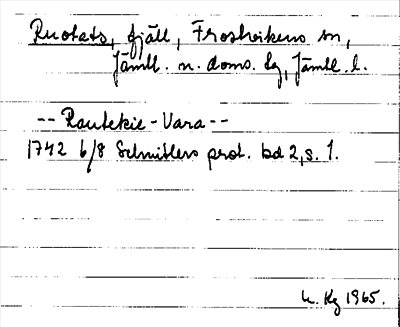 Ruotats, fjäll, Frostvikens sn,
Jämtl. n. doms. lg, Jämtl. l.
-- Rautekie-Vara --
1742 6/8 Schnitlers prot. bd 2, s. 1.
h. Kg 1965.